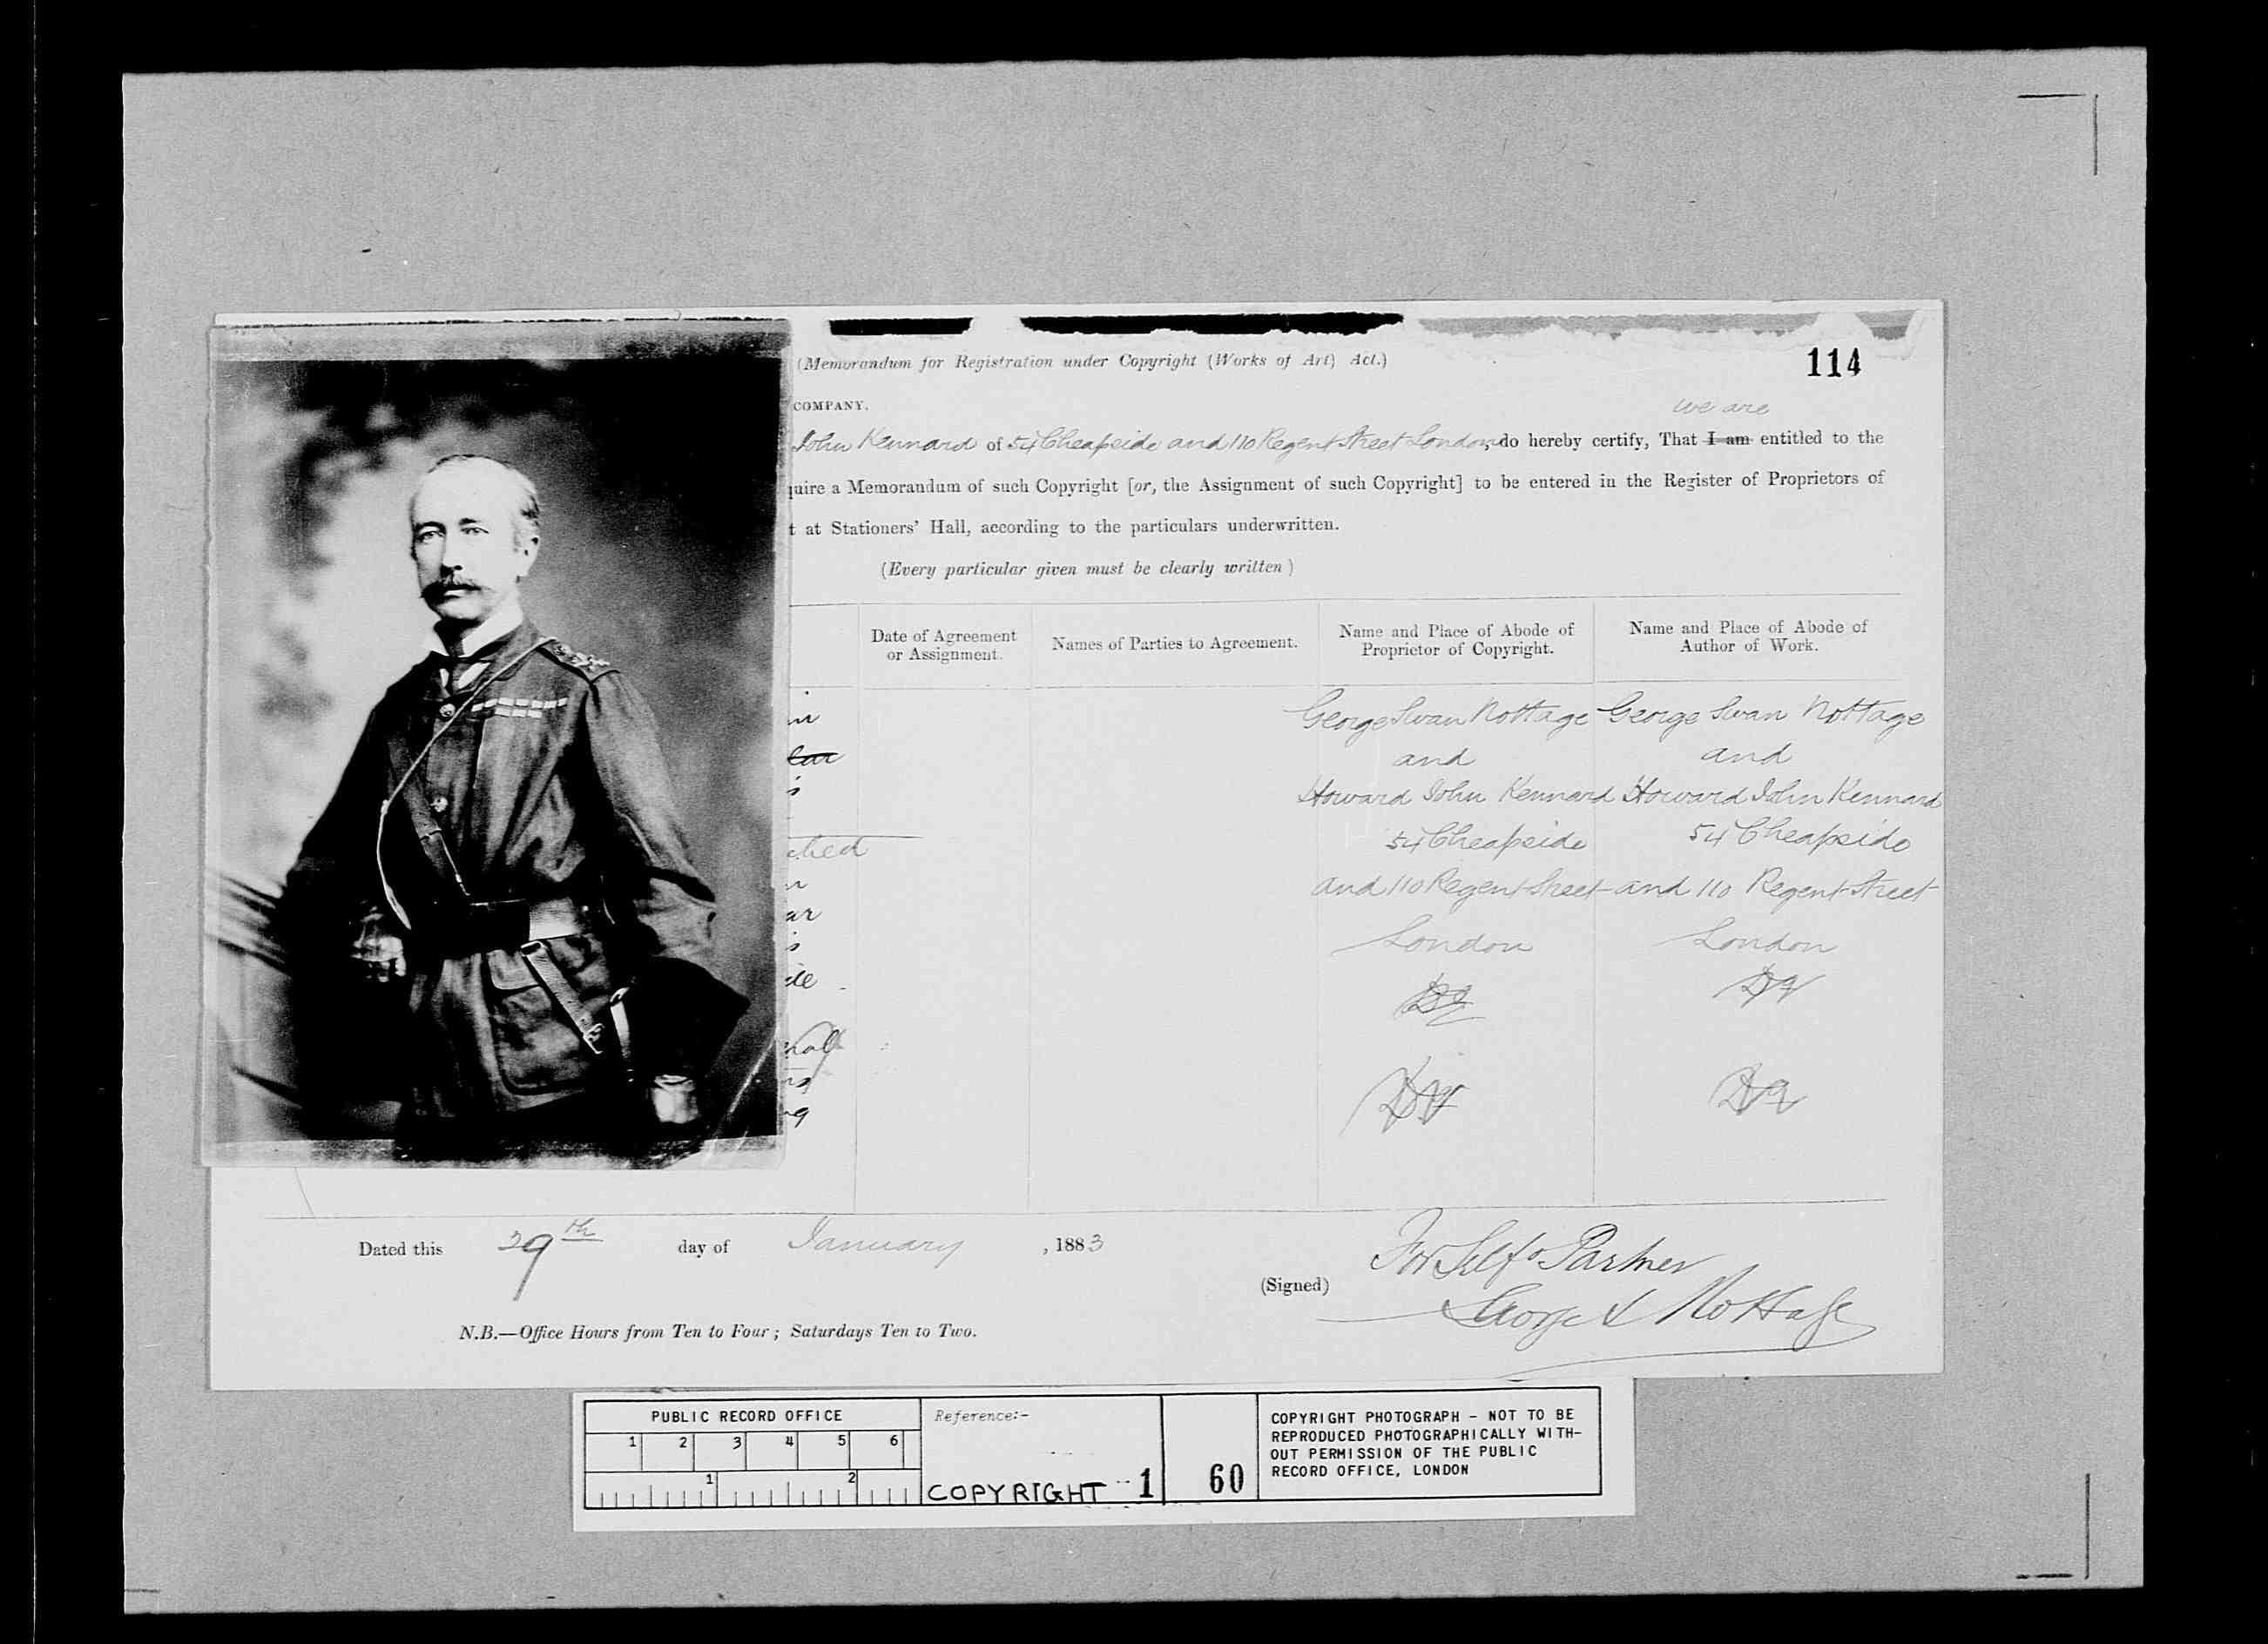 (Memorandum for Registration under Copyright (Works of Art) Act.)
114
COMPANY.
we are
John Kennard of 54 Cheapside and 110 Regent Street London, do hereby certify, That I am entitled to the
quire a Memorandum of such Copyright [or, the Assignment of such Copyright] to be entered in the Register of Proprietors of
t at Stationers' Hall, according to the particulars underwritten.
(Every particular given must be clearly written)
Date of Agreement
or Assignment.
Names of Parties to Agreement.
Name and Place of Abode of
Proprietor of Copyright.
Name and Place of Abode of
Author of Work.
George Swan Nottage
and
Howard John Kennard
54 Cheapside
and 110 Regent Street
London
George Swan Nottage
and
Howard John Kennard
54 Cheapside
and 110 Regent Street
London
Dated this 29th day of January, 1883
(Signed)
For Self & Partner
George S Nottage
N.B.—Office Hours from Ten to Four; Saturdays Ten to Two.
PUBLIC RECORD OFFICE
1 2 3 4 5 6
1 2
Reference:-
COPYRIGHT 1
60
COPYRIGHT PHOTOGRAPH - NOT TO BE
REPRODUCED PHOTOGRAPHICALLY WITH-
OUT PERMISSION OF THE PUBLIC
RECORD OFFICE, LONDON